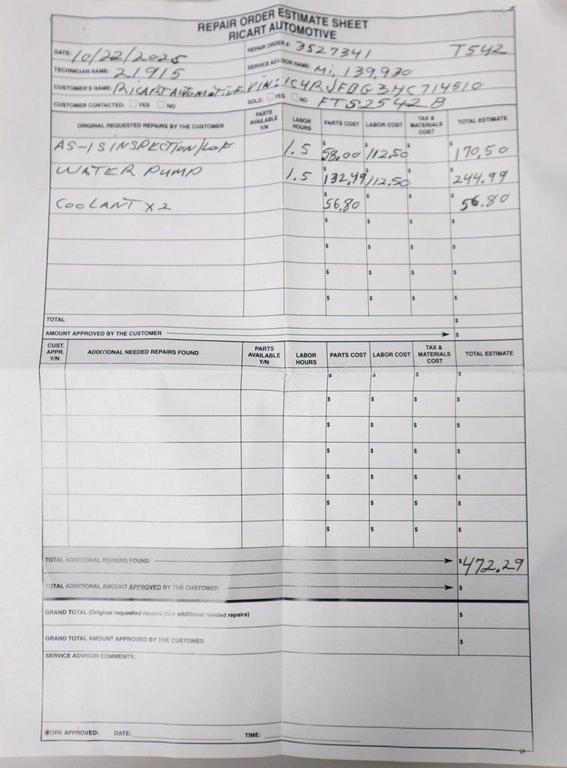 REPAIR ORDER ESTIMATE SHEET
RICART AUTOMOTIVE
DATE: 10/22/2025 REPAIR ORDER #: 3527341 T542
TECHNICIAN NAME: 21915 SERVICE ADVISOR NAME: Mi, 139,930
CUSTOMER'S NAME: RICART AUTOMOTIVE VIN: 1C4RJFBG3HC714510
CUSTOMER CONTACTED: YES NO SOLD: YES NO FTS2542B
ORIGINAL REQUESTED REPAIRS BY THE CUSTOMER PARTS AVAILABLE Y/N LABOR HOURS PARTS COST LABOR COST TAX & MATERIALS COST TOTAL ESTIMATE
AS-IS INSPECTION/LOF 1.5 $58.00 $112.50 $ $170.50
WATER PUMP 1.5 $132.49 $112.50 $ $244.99
COOLANT X2 $56.80 $ $ $56.80
$ $ $ $
$ $ $ $
$ $ $ $
$ $ $ $
TOTAL $
AMOUNT APPROVED BY THE CUSTOMER $
CUST. APPR. Y/N ADDITIONAL NEEDED REPAIRS FOUND PARTS AVAILABLE Y/N LABOR HOURS PARTS COST LABOR COST TAX & MATERIALS COST TOTAL ESTIMATE
$ $ $ $
$ $ $ $
$ $ $ $
$ $ $ $
$ $ $ $
$ $ $ $
$ $ $ $
TOTAL ADDITIONAL REPAIRS FOUND $472.29
TOTAL ADDITIONAL AMOUNT APPROVED BY THE CUSTOMER $
GRAND TOTAL (Original requested repairs plus additional needed repairs) $
GRAND TOTAL AMOUNT APPROVED BY THE CUSTOMER $
SERVICE ADVISOR COMMENTS:
WORK APPROVED: DATE: TIME: